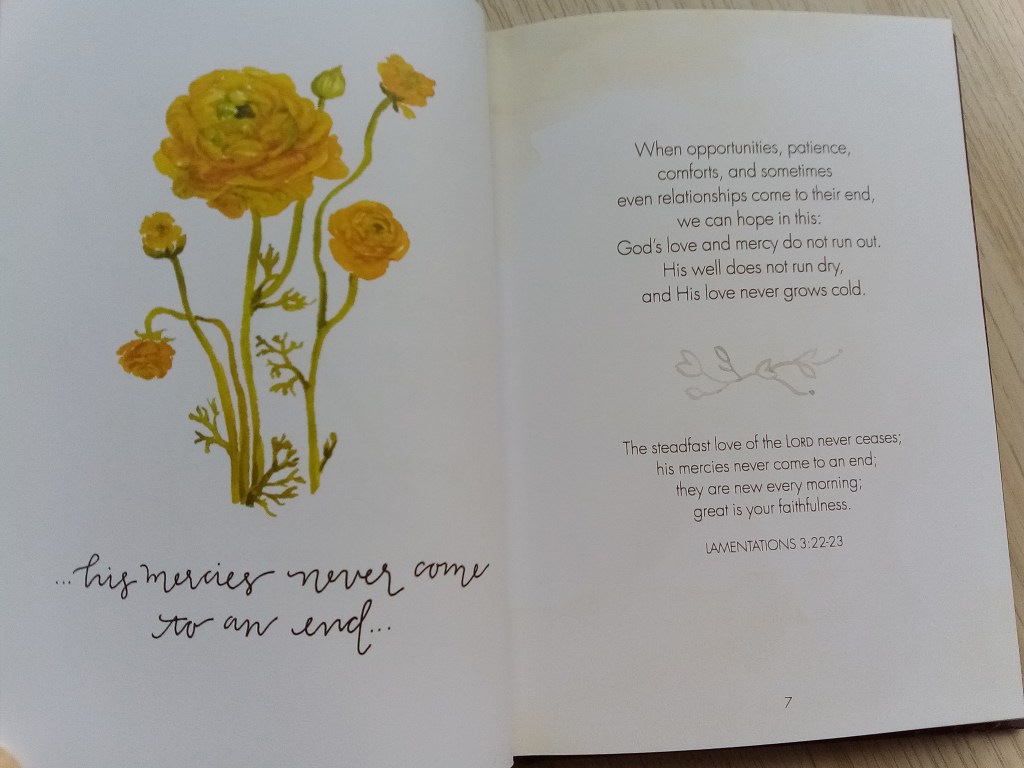 ...his mercies never come
to an end...
When opportunities, patience,
comforts, and sometimes
even relationships come to their end,
we can hope in this:
God's love and mercy do not run out.
His well does not run dry,
and His love never grows cold.
The steadfast love of the LORD never ceases;
his mercies never come to an end;
they are new every morning;
great is your faithfulness.
LAMENTATIONS 3:22-23
7